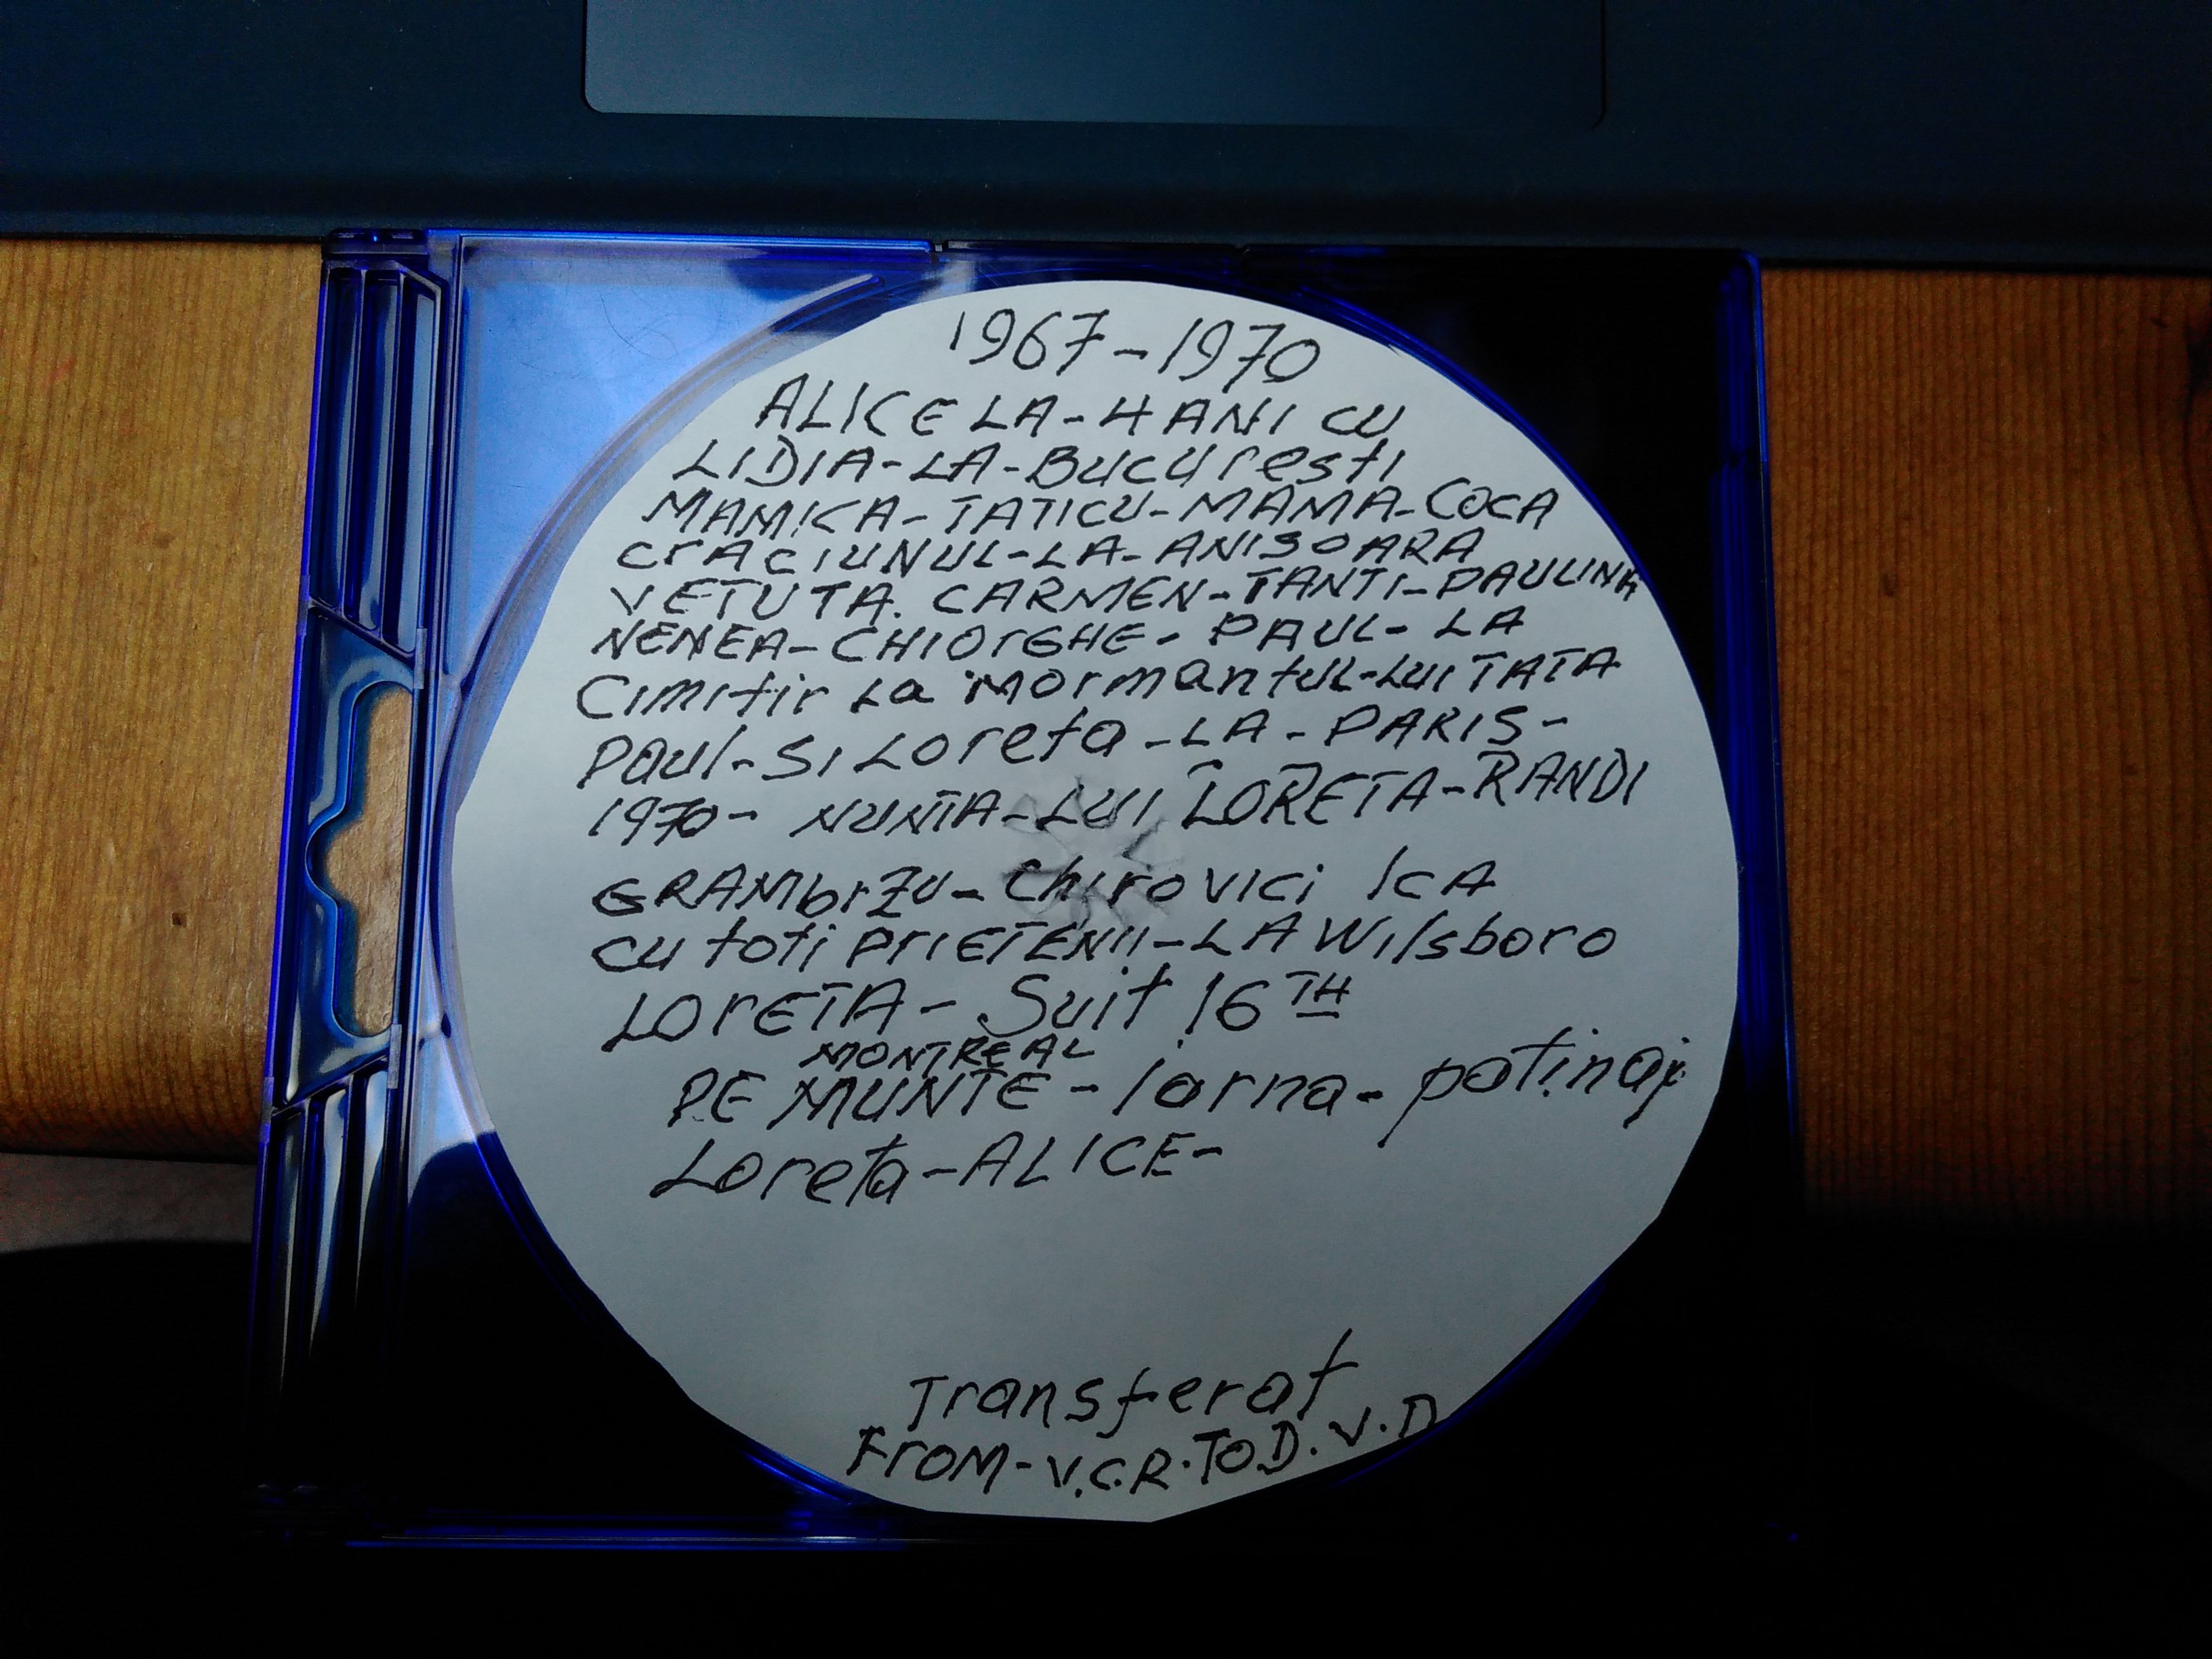 1967-1970
ALICE LA-4 ANI CU
LIDIA-LA-BUCUresti
MAMICA-TATICU-MAMA-COCA
CrACIUNUL-LA-ANISOARA
VETUTA. CARMEN-TANTI-PAULINA
NENEA-CHIOrGHE-PAUL-LA
Cimitir La Mormantul-LUI TATA
Paul-SI Loreta-LA-PARIS-
1970-NUNTA-LUI LORETA-RANDI
GRAMbrZU-Chirovici ICA
CU toti PrIETENII-LA Wilsboro
LOrETA-Suit 16TH
MONTREAL
PE MUNTE-Iarna-patinaj
Loreta-ALICE-
Transferat
FrOM-V.C.R.TO.D.V.D